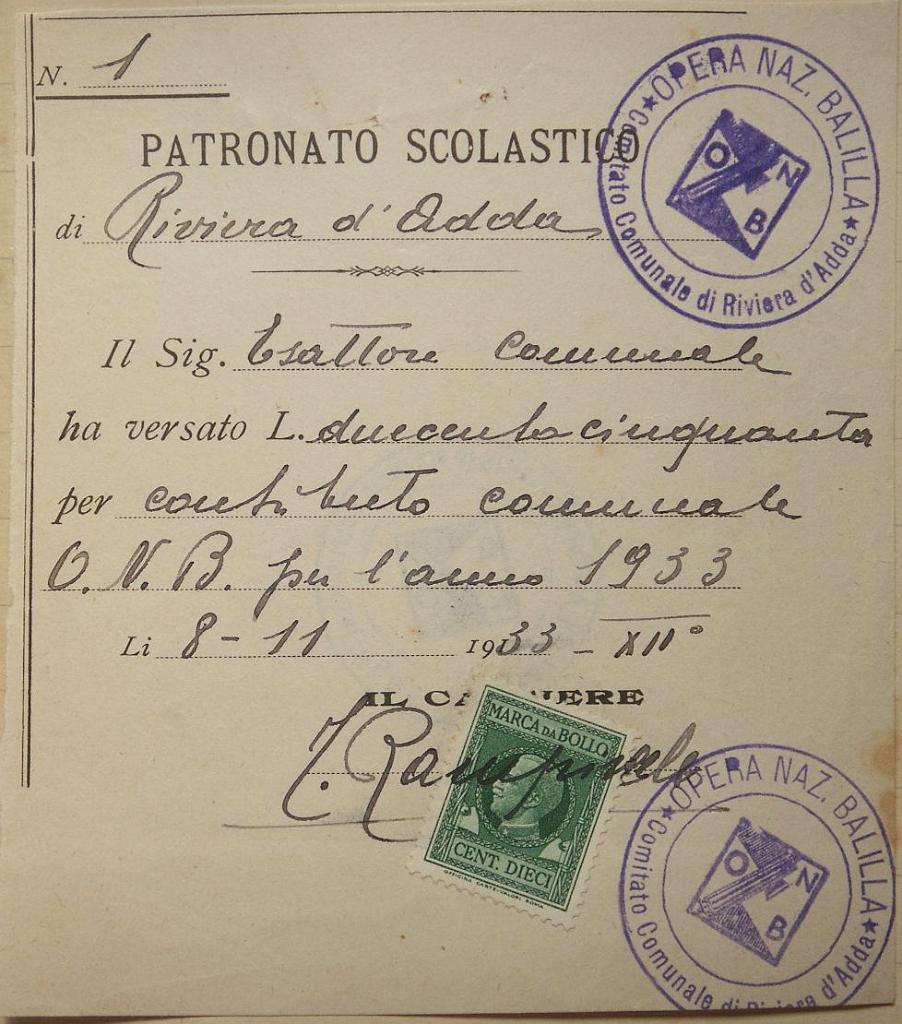 N. 1
PATRONATO SCOLASTICO
di Riviera d'Adda
OPERA NAZ. BALILLA
Comitato Comunale di Riviera d'Adda
O N B
Il Sig. Esattore comunale
ha versato L. duecentocinquanta
per contributo comunale
O.N.B. per l'anno 1933
Li 8-11 1933 - XII°
IL CASSIERE
MARCA DA BOLLO
CENT. DIECI
OFFICINA CARTE-VALORI ROMA
OPERA NAZ. BALILLA
Comitato Comunale di Riviera d'Adda
O N B